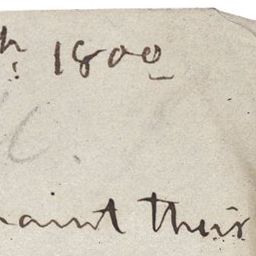 h. 1800
aint their